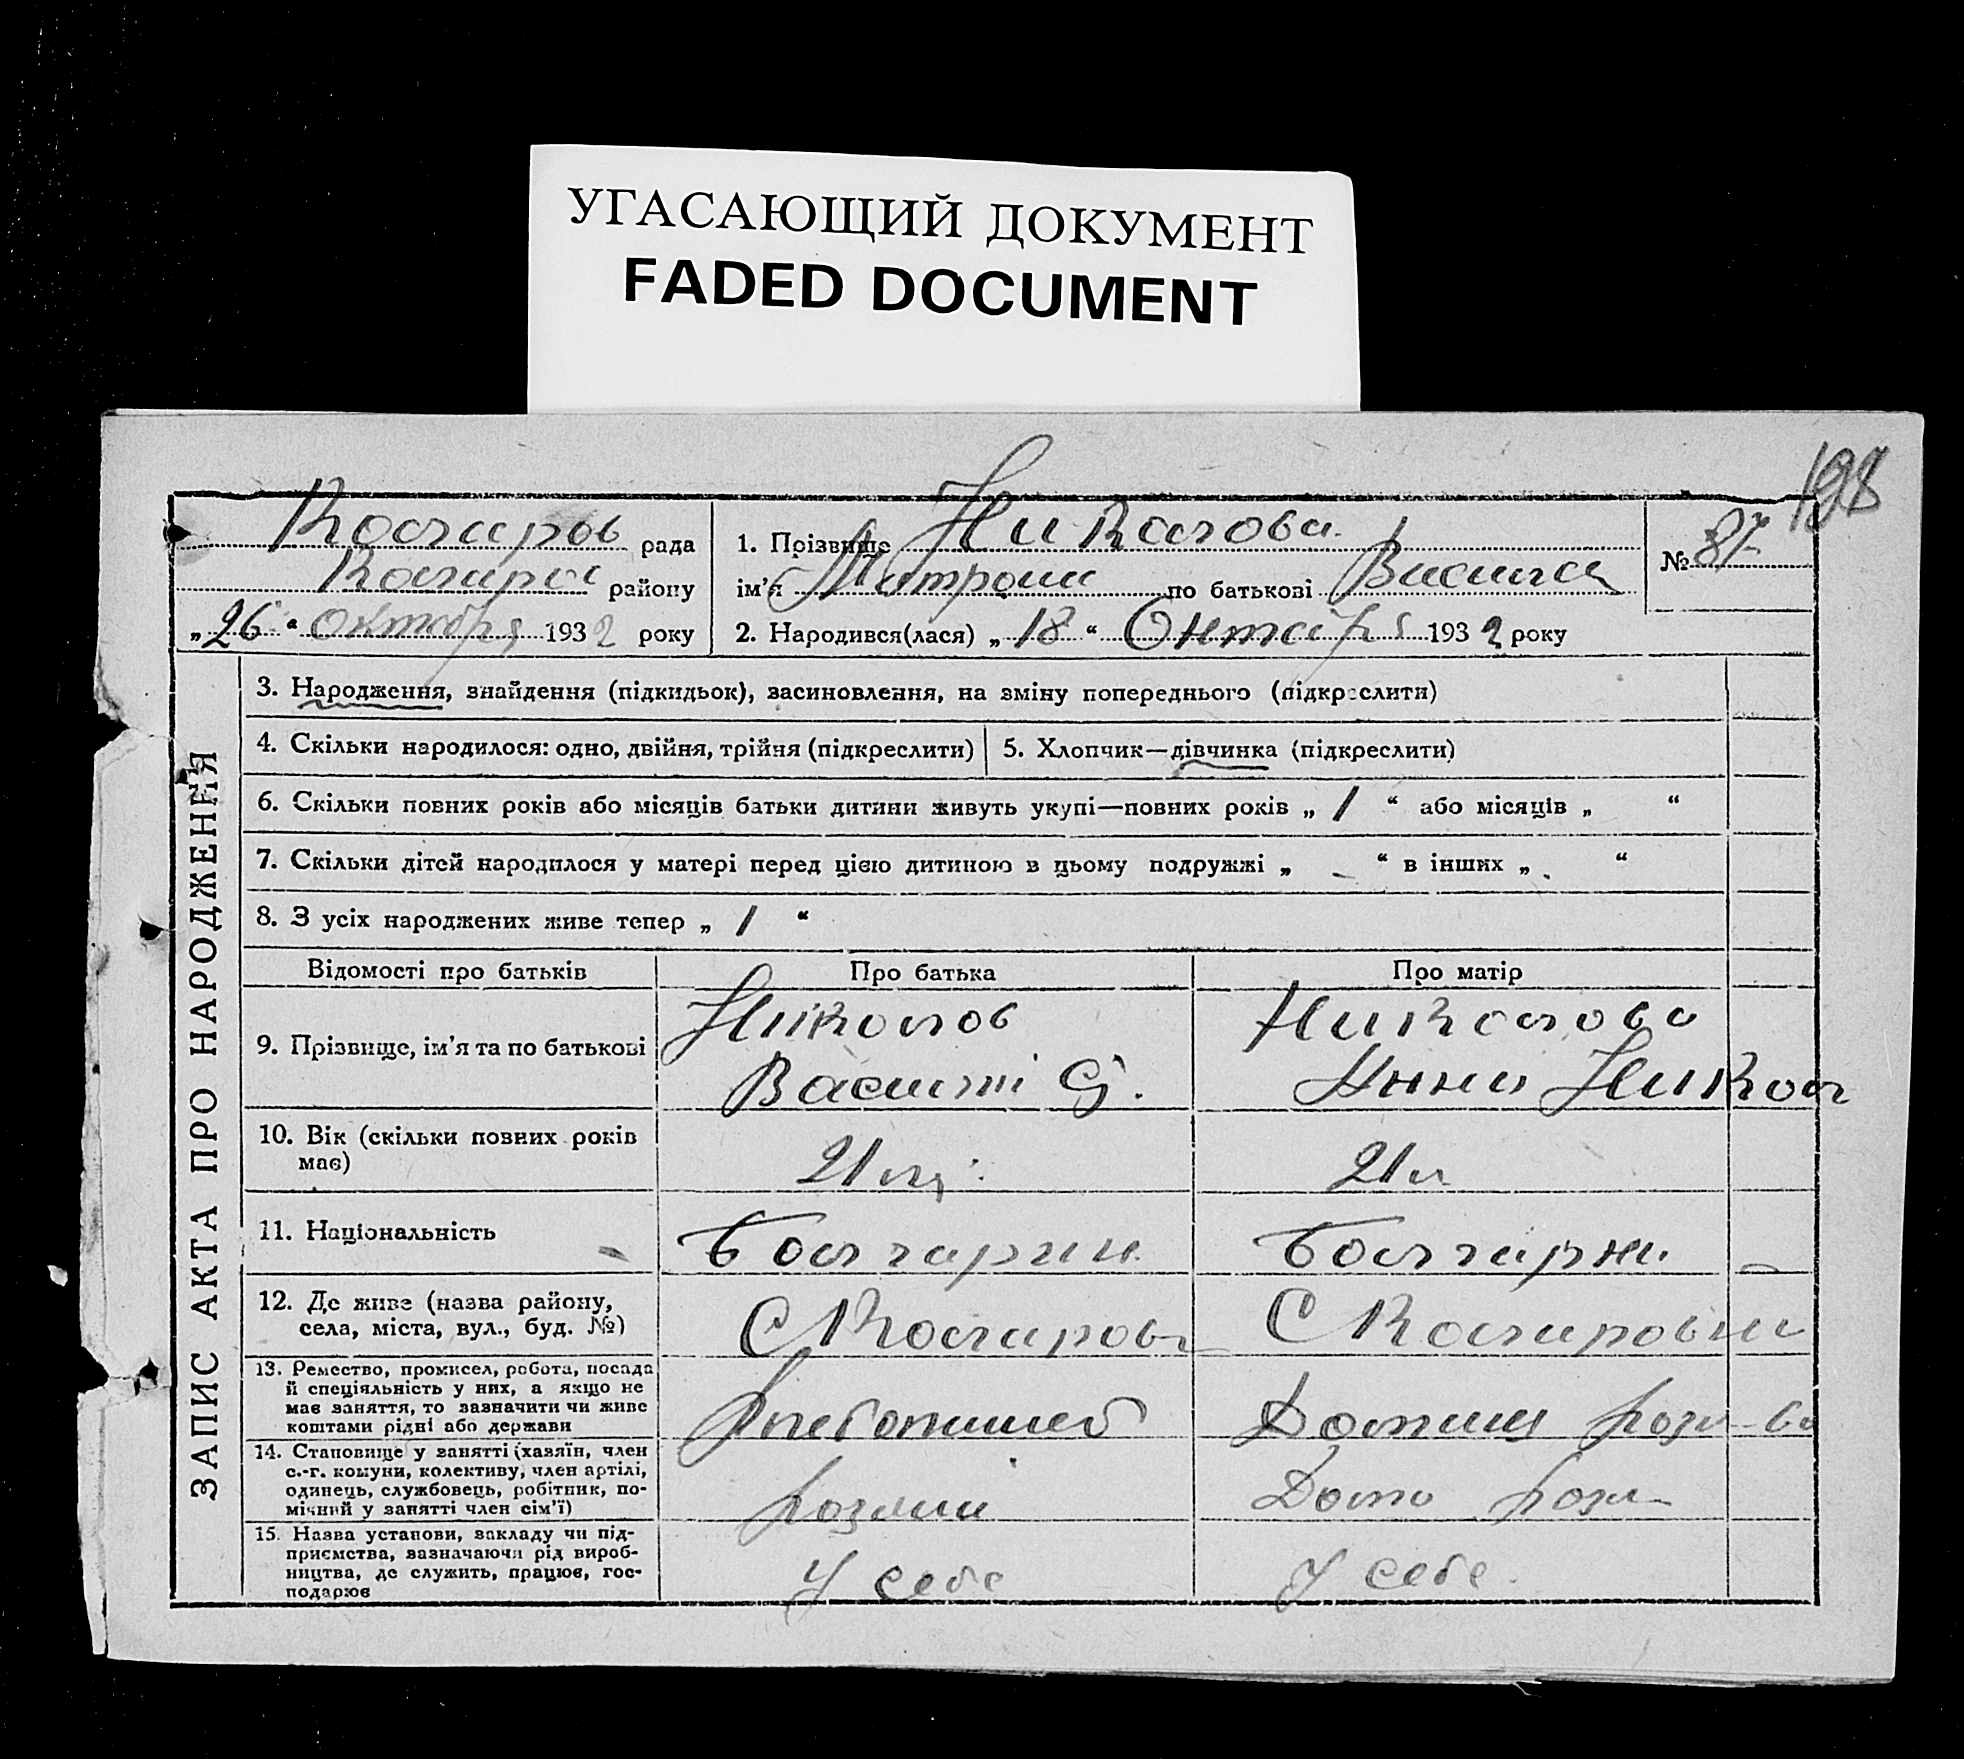 УГАСАЮЩИЙ ДОКУМЕНТ
FADED DOCUMENT
198
Коларов рада
району
„26“ октября 1932 року
1. Прізвище Николова
ім’я Матрона по батькові Василь
№ 87
2. Народився(лася) „18“ Октября 1932 року
ЗАПИС АКТА ПРО НАРОДЖЕННЯ
3. Народження, знайдення (підкидьок), засиновлення, на зміну попереднього (підкреслити)
4. Скільки народилося: одно, двійня, трійня (підкреслити)
5. Хлопчик—дівчинка (підкреслити)
6. Скільки повних років або місяців батьки дитини живуть укупі—повних років „ 1 “ або місяців „ “
7. Скільки дітей народилося у матері перед цією дитиною в цьому подружжі „ - “ в інших „ “
8. З усіх народжених живе тепер „ 1 “
Відомості про батьків
Про батька
Про матір
9. Прізвище, ім’я та по батькові
Николов
Василі
Николова
Анна Никол
10. Вік (скільки повних років
має)
21 л
21 л
11. Національність
Болгарин
Болгарка
12. Де живе (назва району,
села, міста, вул., буд. №)
С Коларовк
С Коларовка
13. Ремество, промисел, робота, посада
й спеціяльність у них, а якщо не
має заняття, то зазначити чи живе
коштами рідні або держави
Хлебопашеб
Домаш хозя-ва
14. Становище у занятті (хазяїн, член
с.-г. комуни, колективу, член артілі,
одинець, службовець, робітник, по-
мічний у занятті член сім’ї)
хозяин
Дома хозя
15. Назва установи, закладу чи під-
приємства, зазначаючи рід вироб-
ництва, де служить, працює, гос-
подарює
У себе
У себе